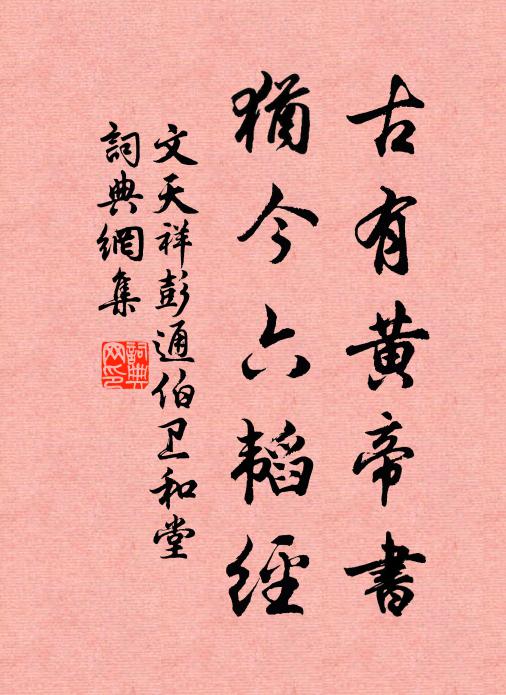 古有黄帝書
猶今六韬經
文天祥彭通伯卫和堂
詞典網集
詞典
网印